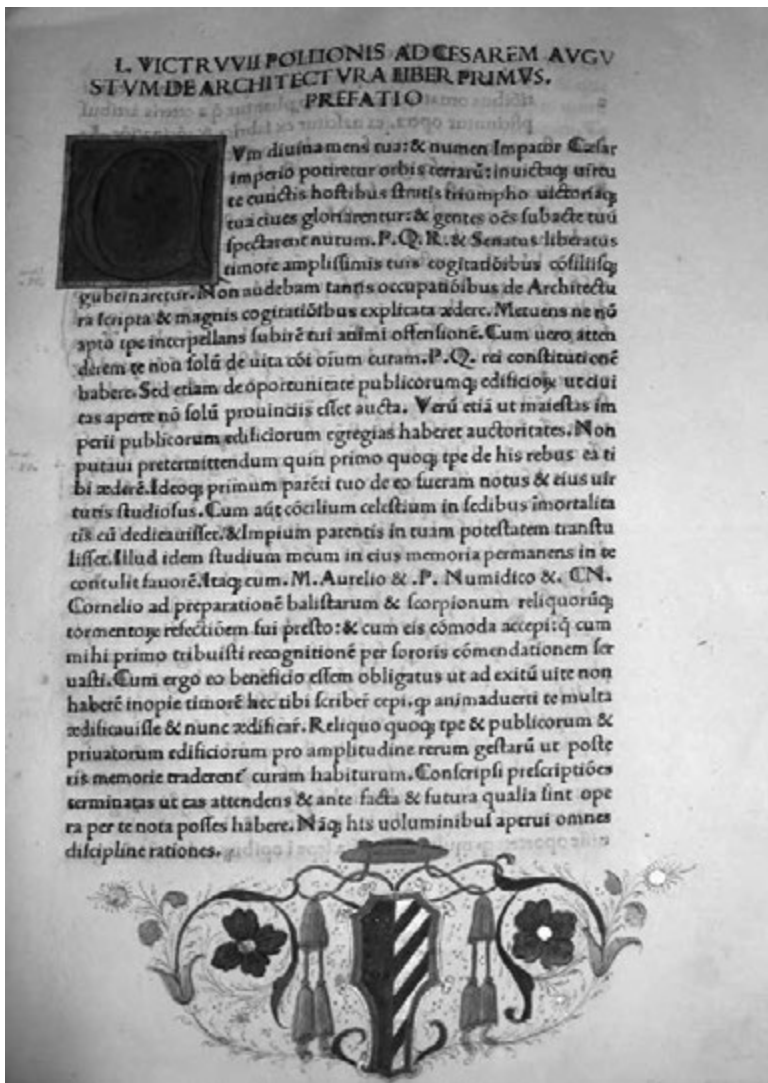 L. VICTRVVII POLLIONIS AD CESAREM AVGV
STVM DE ARCHITECTVRA LIBER PRIMVS.
PREFATIO
CVm diuina mens tua: & numen Impator Cæsar
imperio potiretur orbis terrarū: inuictaq; uirtu
te cunctis hostibus stratis triumpho uictoriaq;
tua ciues gloriarentur: & gentes oēs subacte tuū
spectarent nutum. P. Q. R. & Senatus liberatus
timore amplissimis tuis cogitatiōibus cōsiliisq;
gubernaretur. Non audebam tantis occupatiōibus de Architectu
ra scripta & magnis cogitatiōibus explicata ædere. Metuens ne nō
apto tpe interpellans subirē tui animi offensionē. Cum uero atten
derem te non solū de uita cōi oīum curam. P. Q. rei constitutionē
habere. Sed etiam de oportunitate publicorumq; edificioꝝ ut ciui
tas aperte nō solū prouinciis esset aucta. Verū etiā ut maiestas im
perii publicorum edificiorum egregias haberet auctoritates. Non
putaui pretermittendum quin primo quoq; tpe de his rebus ea ti
bi æderē. Ideoq; primum parēti tuo de eo fueram notus & eius uir
tutis studiosus. Cum aūt cōcilium celestium in sedibus īmortalita
tis eū dedicauisset. & Impium parentis in tuam potestatem transtu
lisset. Illud idem studium meum in eius memoria permanens in te
contulit fauorē. Itaq; cum. M. Aurelio & .P. Numidico &. CN.
Cornelio ad preparationē balistarum & scorpionum reliquorūq;
tormentoꝝ refectiōem fui presto: & cum eis cōmoda accepi: q̄ cum
mihi primo tribuisti recognitionē per sororis cōmendationem ser
uasti. Cum ergo eo beneficio essem obligatus ut ad exitū uite non
haberē inopie timorē hec tibi scriber̄ cepi. ꝙ animaduerti te multa
ædificauisse & nunc ædificar̄. Reliquo quoq; tpe & publicorum &
priuatorum edificiorum pro amplitudine rerum gestarū ut poste
ris memorie traderent̄ curam habiturum. Conscripsi prescriptiōes
terminatas ut eas attendens & ante facta & futura qualia sint ope
ra per te nota posses habere. Nāq; his uoluminibus aperui omnes
discipline rationes.